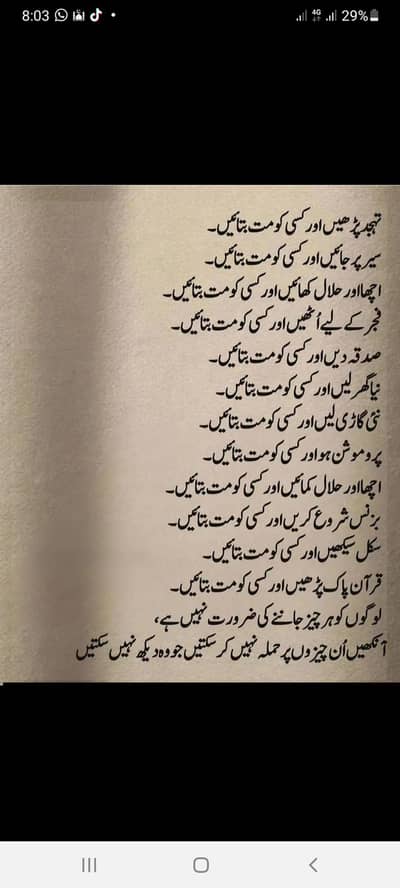 8:03
4G
29%
تہجد پڑھیں اور کسی کو مت بتائیں۔
سیر پر جائیں اور کسی کو مت بتائیں۔
اچھا اور حلال کھائیں اور کسی کو مت بتائیں۔
فجر کے لیے اُٹھیں اور کسی کو مت بتائیں۔
صدقہ دیں اور کسی کو مت بتائیں۔
نیا گھر لیں اور کسی کو مت بتائیں۔
نئی گاڑی لیں اور کسی کو مت بتائیں۔
پروموشن ہو اور کسی کو مت بتائیں۔
اچھا اور حلال کمائیں اور کسی کو مت بتائیں۔
بزنس شروع کریں اور کسی کو مت بتائیں۔
سکل سیکھیں اور کسی کو مت بتائیں۔
قرآن پاک پڑھیں اور کسی کو مت بتائیں۔
لوگوں کو ہر چیز جاننے کی ضرورت نہیں ہے،
آنکھیں اُن چیزوں پر حملہ نہیں کر سکتیں جو وہ دیکھ نہیں سکتیں